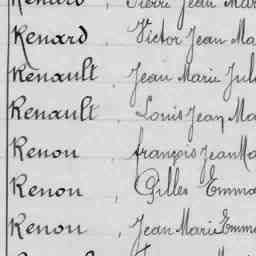 Renard, Pierre Jean Mar
Renard, Victor Jean Ma
Renault, Jean Marie Jul
Renault, Louis Jean Ma
Renon, françois Jean Ma
Renon, Gilles Emma
Renon, Jean Marie Emm